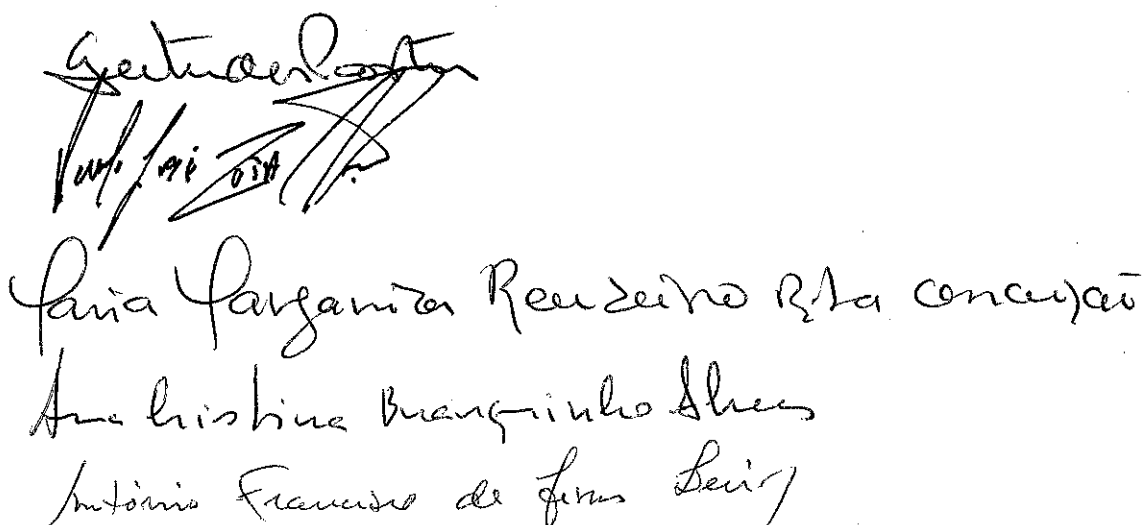 Gertrudes Costa
José
Maria Margarida Renzeiro Rita Conceição
Ana Christina Branquinho Alves
António Francisco de Jesus